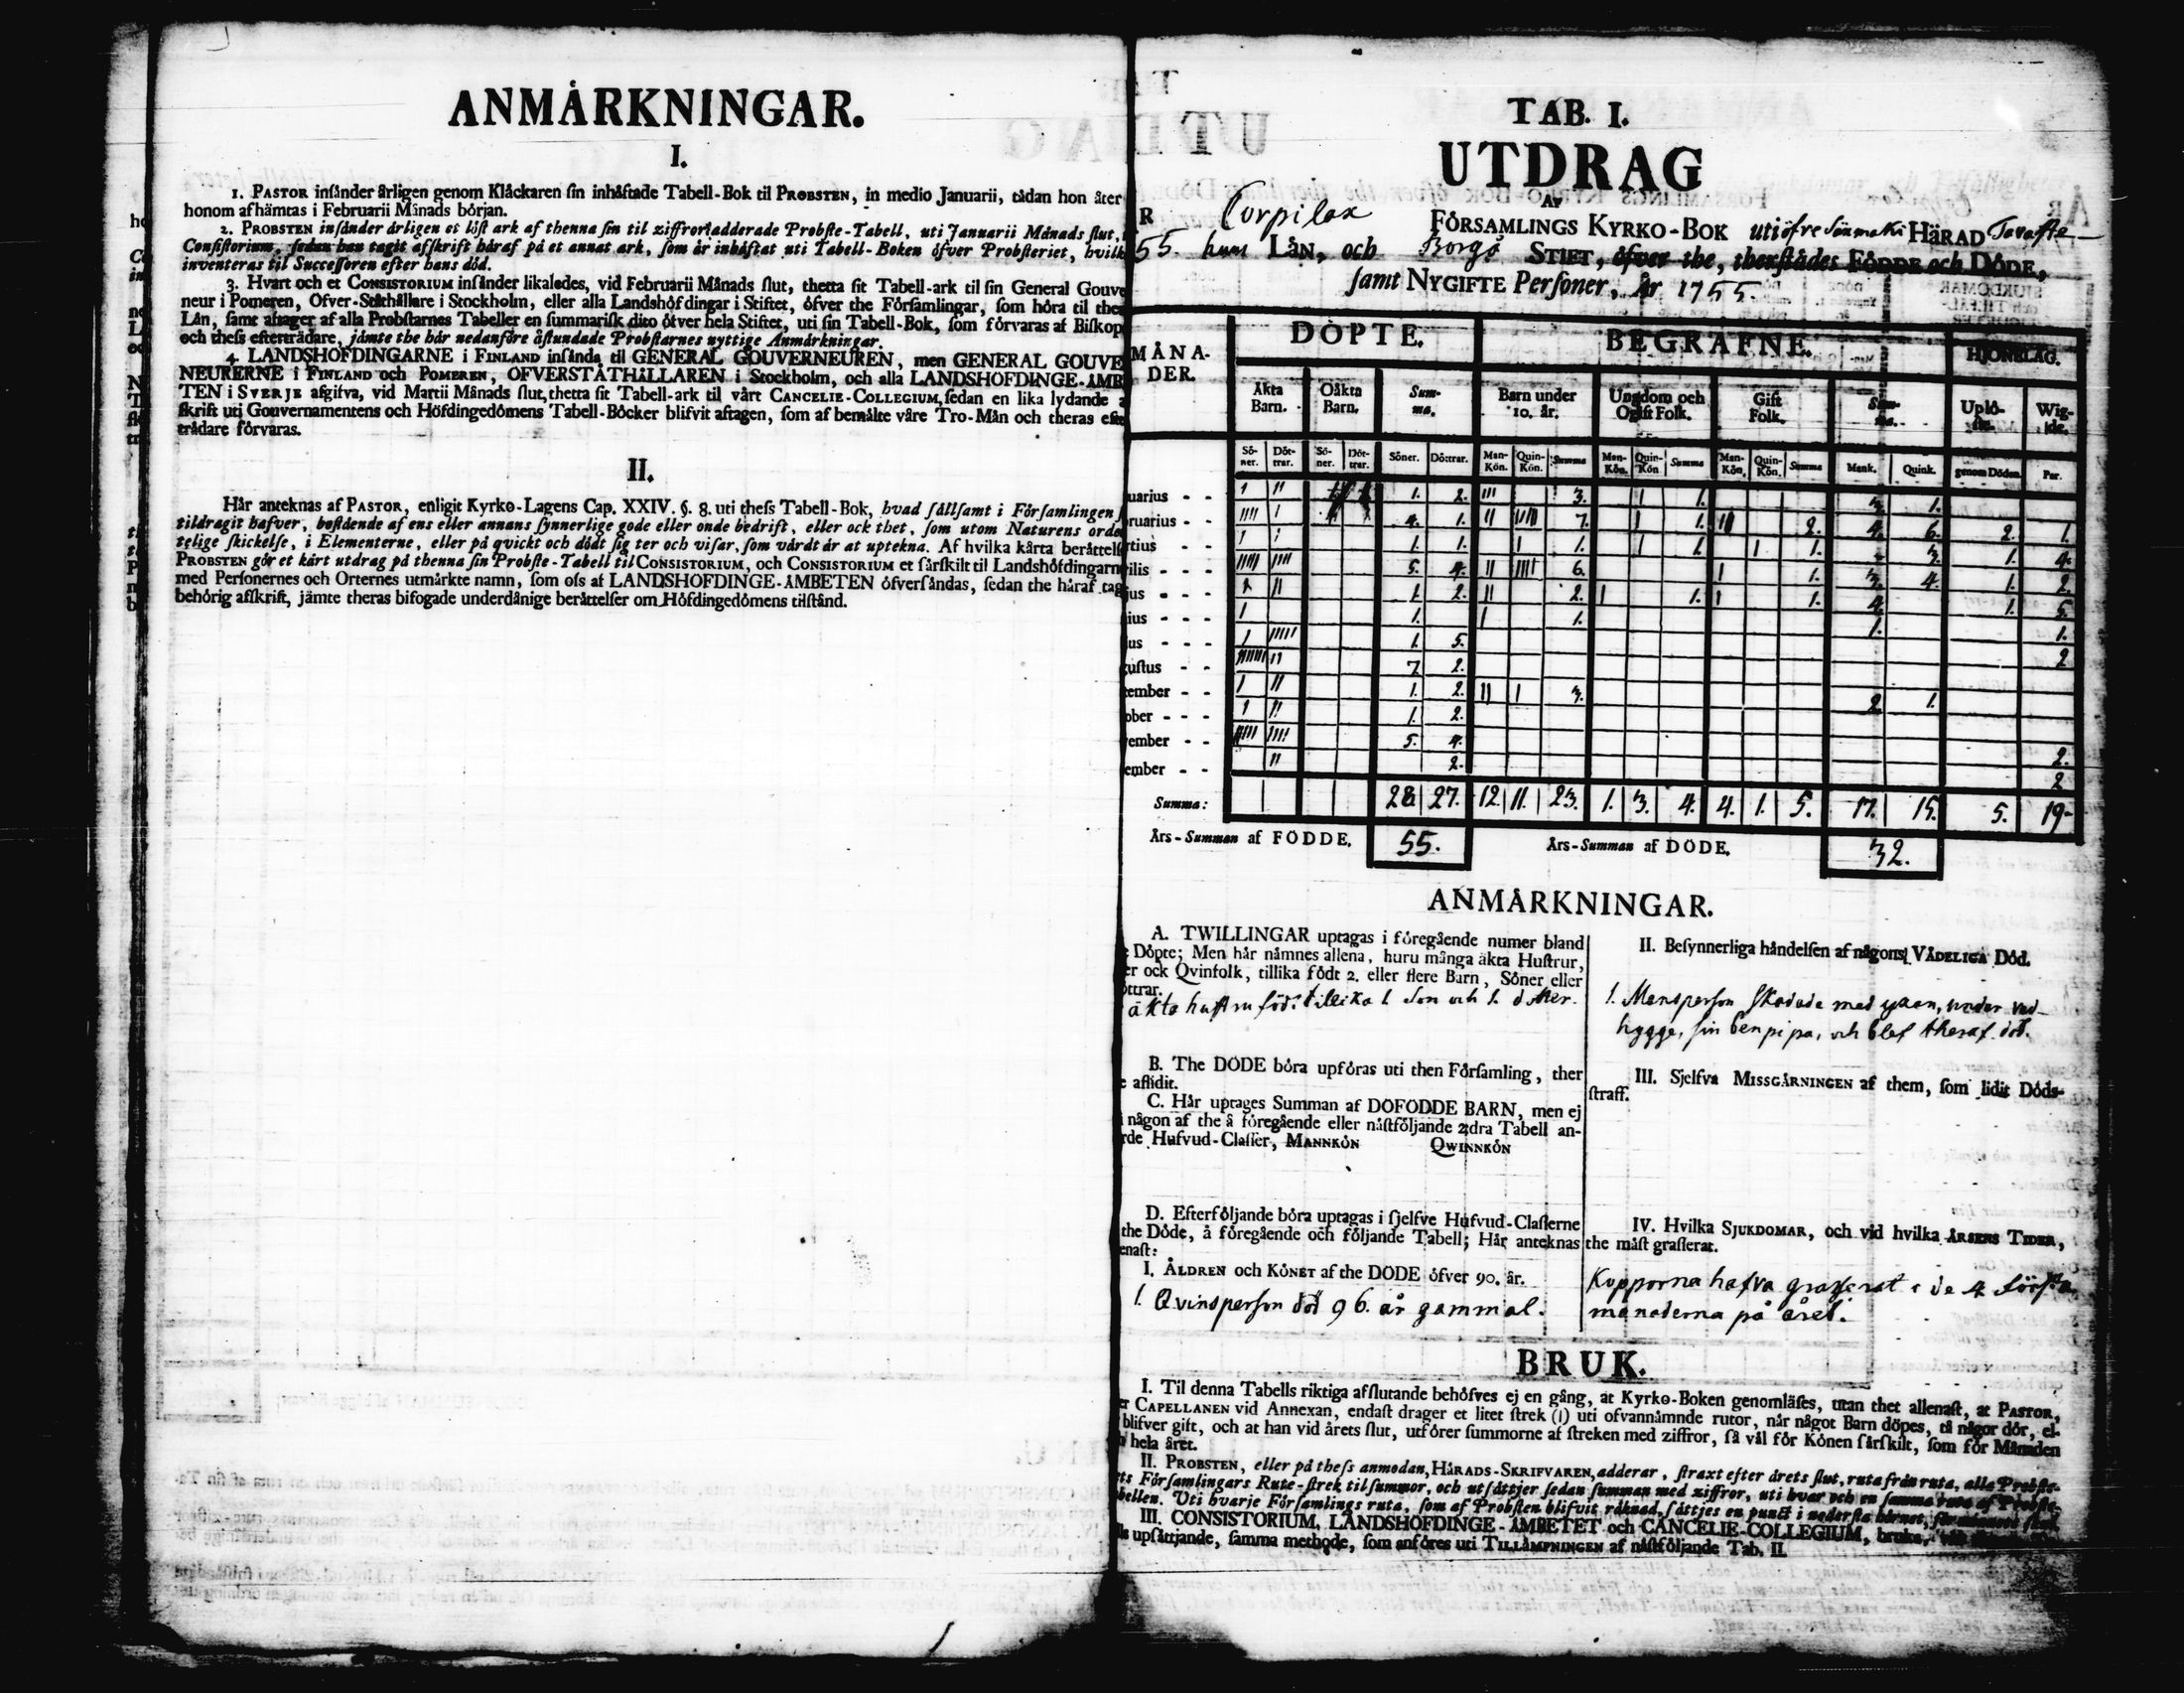 ANMÅRKNINGAR.
I.
1. PASTOR insånder årligen genom Klåckaren sin inhåftade Tabell-Bok til PROBSTEN, in medio Januarii, tådan hon åter
honom afhämtas i Februarii Månads bórjan.
2. PROBSTEN insånder årligen et lóst ark af thenna sin til ziffror adderade Probste-Tabell, uti Januarii Månads slut,
Consistorium, sedan han tagit afskrift håraf på et annat ark, som år inhåftat uti Tabell-Boken ófver Probsteriet, hvilk
inventeras til Successoren efter hans dód.
3. Hvart och et CONSISTORIUM insånder likaledes, vid Februarii Månads slut, thetta sit Tabell-ark til sin General Gouve
neur i Pomeren, Ofver-Ståthållare i Stockholm, eller alla Landshófdingar i Stiftet, ófver the Fórsamlingar, som hóra til the
Lån, samt aftager af alla Probstarnes Tabeller en summarisk dito ófver hela Stiftet, uti sin Tabell-Bok, som fórvaras af Biskop
och thess eftertrådare, jåmte the hår nedanfóre åstundade Probstarnes nyttige Anmårkningar.
4. LANDSHOFDINGARNE i FINLAND insånda til GENERAL GOUVERNEUREN, men GENERAL GOUVE
NEURERNE i FINLAND och POMEREN, OFVERSTÅTHÅLLAREN i Stockholm, och alla LANDSHOFDINGE-ÅMB
TEN i SVERJE afgifva, vid Martii Månads slut, thetta sit Tabell-ark til vårt CANCELIE-COLLEGIUM, sedan en lika lydande
skrift uti Gouvernamentens och Höfdingedómens Tabell-Böcker blifvit aftagen, som af bemålte våre Tro-Mån och theras efte
trådare fórvaras.
II.
Hår anteknas af PASTOR, enligit Kyrko-Lagens Cap. XXIV. §. 8. uti thess Tabell-Bok, hvad sållsamt i Fórsamlingen
tildragit hafver, bestående af ens eller annans synnerlige gode eller onde bedrift, eller ock thet, som utom Naturens orde
telige skickelse, i Elementerne, eller på qvickt och dódt sig ter och visar, som vårdt år at uptekna. Af hvilka kårta beråttels
PROBSTEN gór et kårt utdrag på thenna sin Probste-Tabell til CONSISTORIUM, och CONSISTORIUM et sårskilt til Landshófdingarn
med Personernes och Orternes utmårkte namn, som oss af LANDSHOFDINGE-ÅMBETEN ófversåndas, sedan the håraf tag
behórig afskrift, jämte theras bifogade underdånige beråttelser om Hófdingedómens tilstånd.
TAB. I.
UTDRAG
AF
R Corpilax FÓRSAMLINGS KYRKO-BOK uti öfre Sönmäki HÄRAD Tavaste-
55. huus LÅN, och Borgå STIFT, ófver the, therstådes FÓDDE och DÓDE,
samt NYGIFTE Personer, År 1755.
MÅNA- DER. DÓPTE. BEGRAFNE. HJONELAG.
Åkta Barn. Oåkta Barn. Sum- ma. Barn under 10. år. Ungdom och Ogift Folk. Gift Folk. Sum- ma. Upló- ste. Wig- de.
Só- ner. Dót- trar. Só- ner. Dót- trar. Sóner. Dóttrar. Man- Kón. Quin- Kón. Summa Man- Kón. Quin- Kón Summa Man- Kón. Quin- Kón. Summa Mank. Quink. genom Dóden. Par.
uarius - - I II 1. 2. III 3. I 1. 3. 1.
bruarius - - IIII I 4. 1. II IIIII 7. I 1. II 2. 4. 6. 2. 1.
rtius - - I I 1. 1. I 1. I 1. I 1. 3. 1. 4.
rilis - - IIIII IIII 5. 4. II IIII 6. I 1. 3. 4. 1. 2.
jus - - - I II 1. 2. II 2. I 1. I 1. 4. 1. 5.
ius - - - I 1. I 1. 1. 1.
us - - - I IIIII 1. 5. 2
gustus - - IIIIIII II 7 2.
tember - - I II 1. 2. II I 3. 2 1.
ober - - - I II 1. 2.
vember - - IIIII IIII 5. 4. 2.
ember - - II 2. 2
Summa: 28 27. 12. 11. 23. 1. 3. 4. 4. 1. 5. 17. 15. 5. 19.
Års-Summan af FÖDDE. 55. Års-Summan af DÖDE. 32.
ANMÅRKNINGAR.
A. TWILLINGAR uptagas i fóregående numer bland
Dópte; Men hår nåmnes allena, huru många åkta Hustrur,
er ock Qvinfolk, tillika fódt 2. eller flere Barn, Sóner eller
óttrar.
äkta hustru född tillika 1 Son och 1. dotter.
B. The DÖDE bóra upfóras uti then Fórsamling, ther
e aflidit.
C. Hår uptages Summan af DÓFÓDDE BARN, men ej
i någon af the å fóregående eller nåstfóljande 2:dra Tabell an-
rde Hufvud-Classer, MANNKÓN QWINNKÓN
D. Efterfóljande bóra uptagas i sjelfve Hufvud-Classerne
the Dóde, å fóregående och fóljande Tabell; Hår anteknas
enast:
I. ÅLDREN och KÓNET af the DÓDE ófver 90. år.
1. Qvinsperson död 96. år gammal.
II. Besynnerliga håndelsen af någons VÅDELIGA Dód.
1. Mansperson skadade med yxan, under ved-
hygge, sin benpipa, och blef theraf död.
III. Sjelfva MISSGÅRNINGEN af them, som lidit Dóds-
straff.
IV. Hvilka SJUKDOMAR, och vid hvilka ÅRSENS TIDER,
the måst grasserat.
Kopporna hafva grasserat i de 4 första
månaderna på året.
BRUK.
I. Til denna Tabells riktiga afslutande behófves ej en gång, at Kyrko-Boken genomlåses, utan thet allenast, at PASTOR,
er CAPELLANEN vid Annexan, endast drager et litet strek (I) uti ofvannåmnde rutor, når något Barn döpes, tå någor dór, el-
blifver gift, och at han vid årets slut, utfórer summorne af streken med ziffror, så vål fór Kónen sårskilt, som fór Månaden
hela året.
II. PROBSTEN, eller på thess anmodan, HÄRADS-SKRIFVAREN, adderar, straxt efter årets slut, ruta från ruta, alla Probste-
ts Fórsamlingars Rute-strek til summor, och utsåttjer sedan summan med ziffror, uti hvar och en samma ruta af Probste-
bellen. Uti hvarje Fórsamlings ruta, som af Probsten blifvit råknad, såttjes en punct i nedersta hórnet,
III. CONSISTORIUM, LANDSHOFDINGE-ÅMBETET och CANCELIE-COLLEGIUM, bruka,
upsåttjande, samma methode, som anfóres uti TILLÅMPNINGEN af nåstfóljande Tab. II.